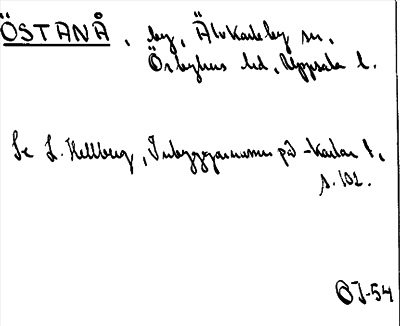 ÖSTANÅ, by, Älvkarleby sn,
Örbyhus hd, Uppsala l.
Se L. Hellberg, Inbyggarnamn på -karlar 1,
s. 102.
OJ-54